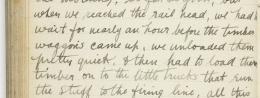 when we reached the rail head, we had
wait for nearly an hour before the timber
waggons came up, we unloaded them
pretty quick, & then had to load the
timber on to the little trucks that run
the stuff to the firing line, all this